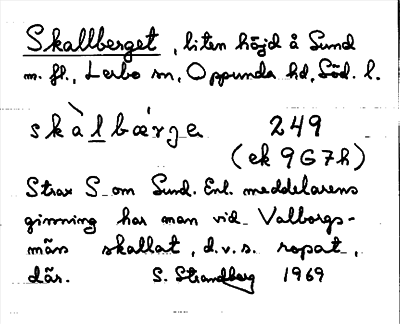 Skallberget, liten höjd å Sund
m. fl., Lerbo sn, Oppunda hd, Söd. l.
skàlbǽrjə 249
(ek 9G7h)
Strax S om Sund. Enl. meddelarens
ginning har man vid Valborgs-
mäss skallat, d.v.s. ropat,
där. S. Strandberg 1969